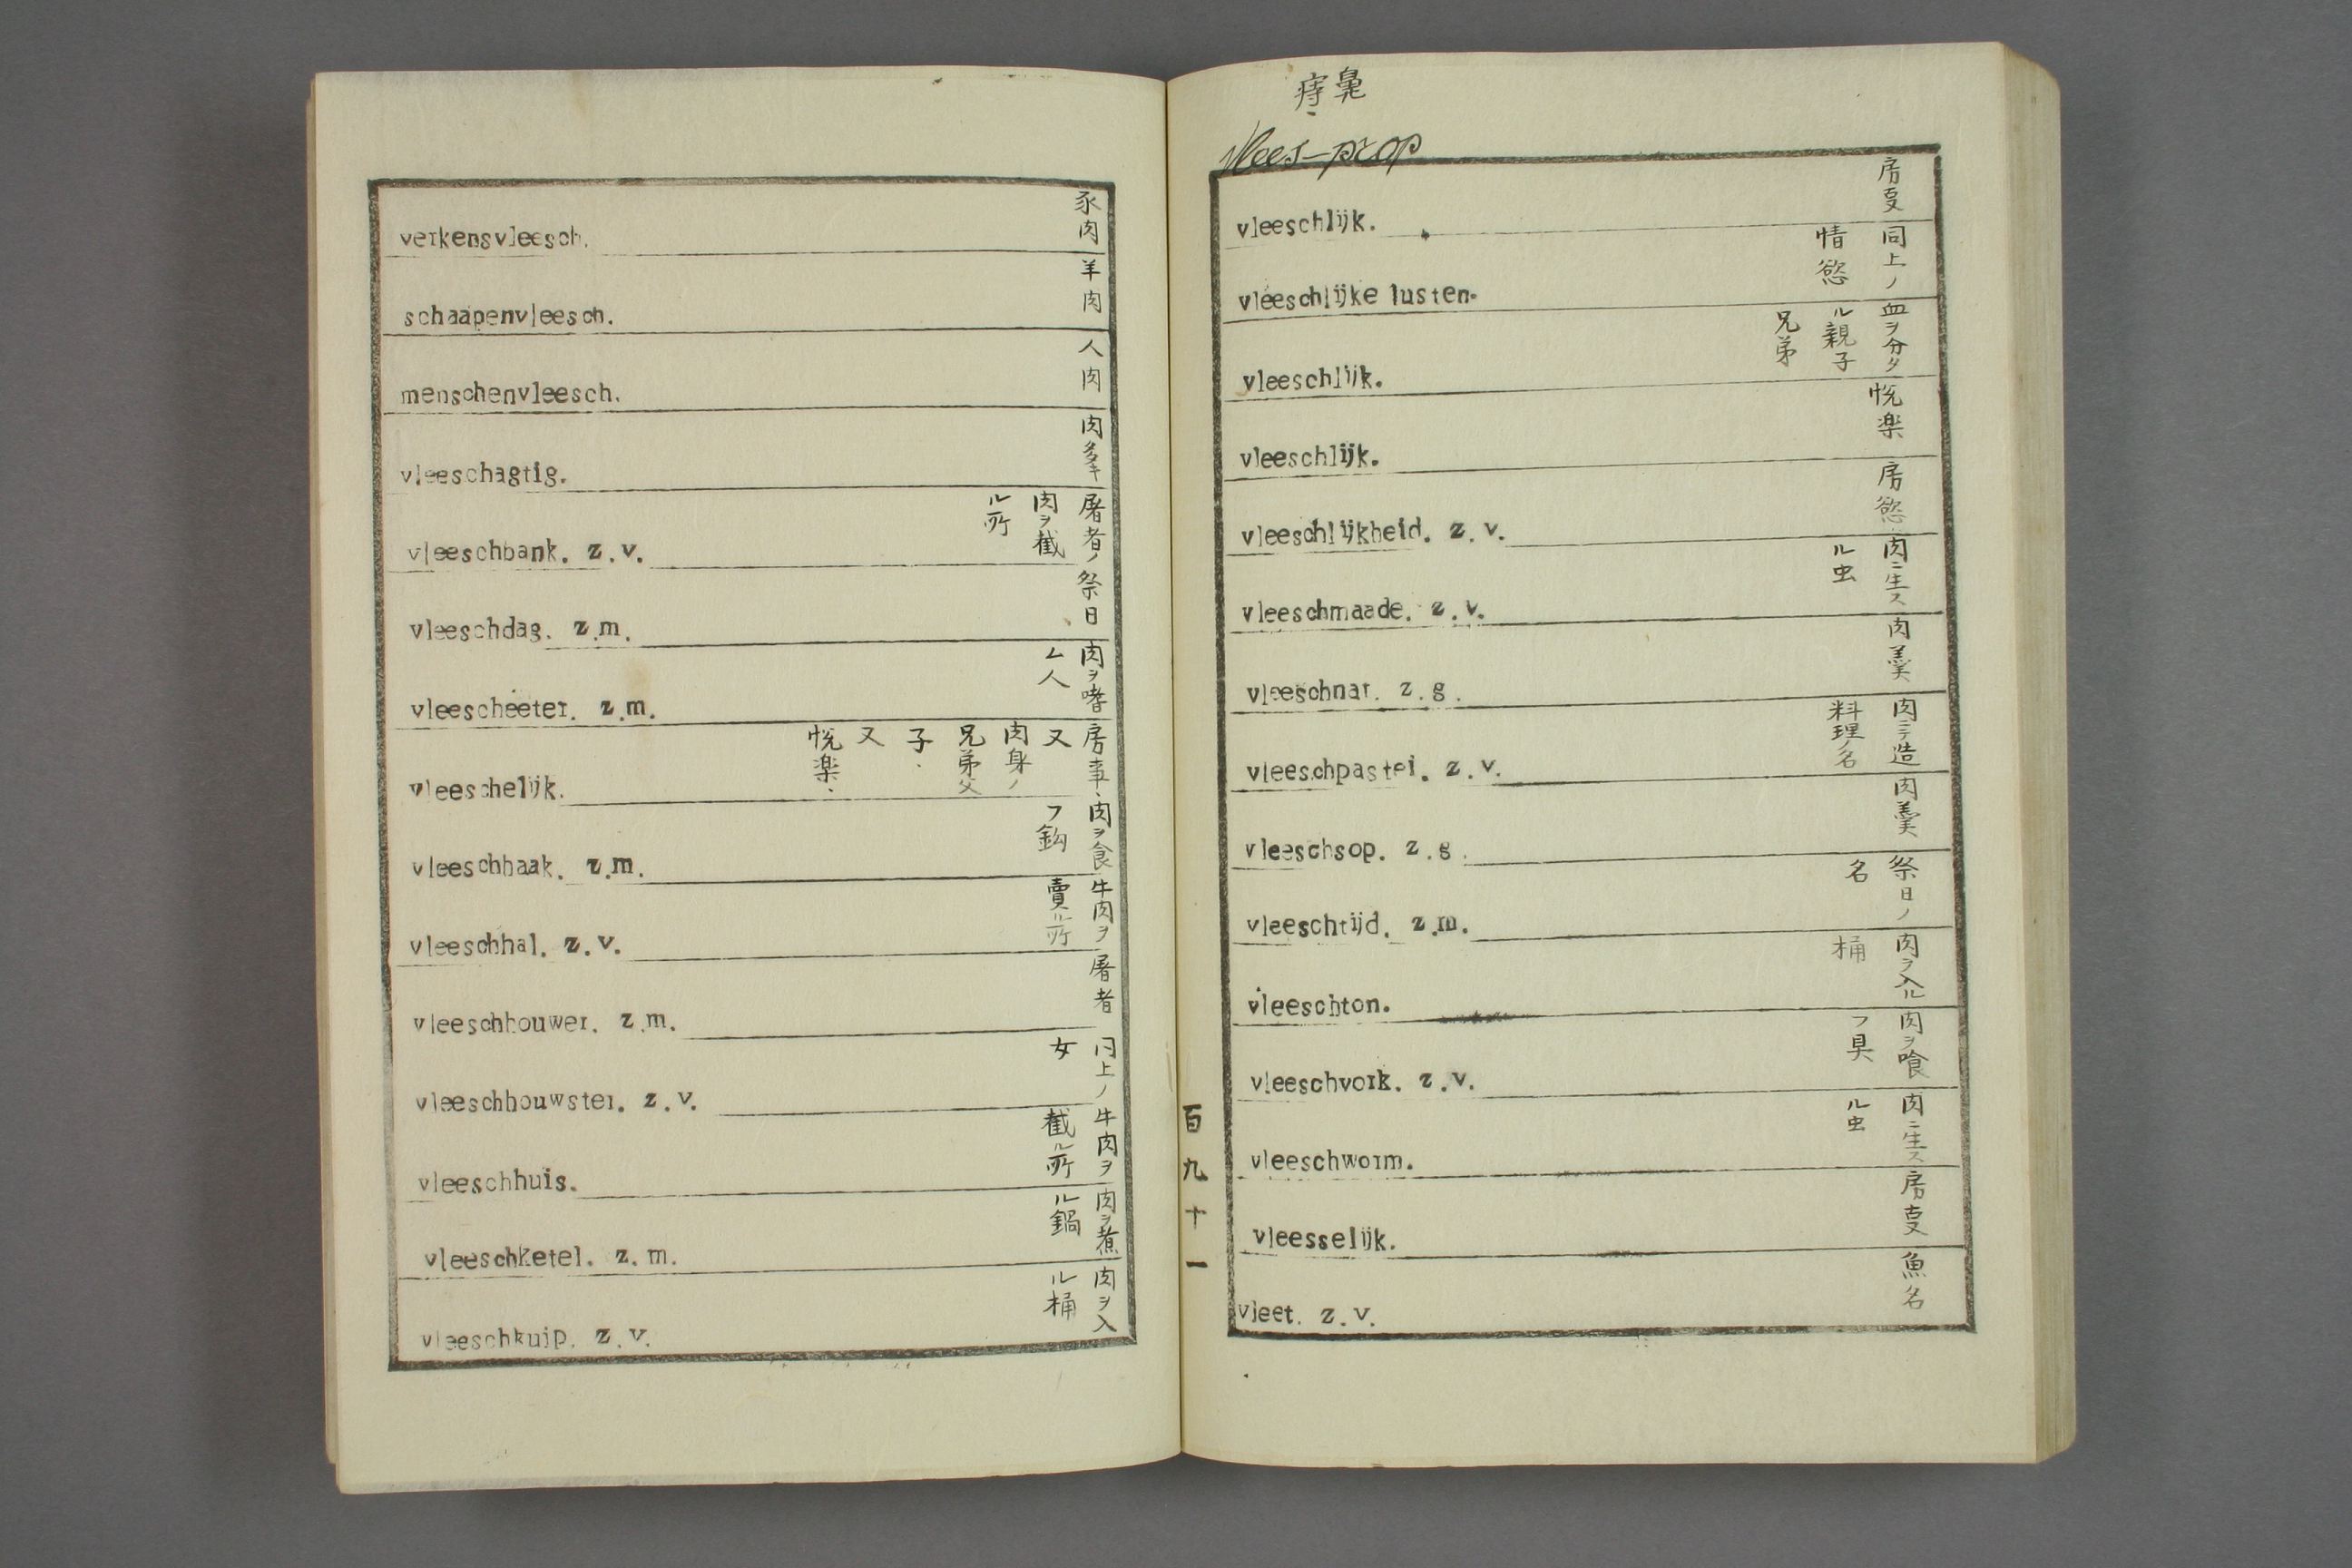 verkensvleesch. 豕肉
schaapenvleesch. 羊肉
menschenvleesch. 人肉
vleeschagtig. 肉多キ
vleeschbank. z.v. 屠者ノ肉ヲ截ル所
vleeschdag. z.m. 祭日
vleescheeter. z.m. 肉ヲ嗜ム人
vleeschelijk. 房事.又肉身ノ兄弟父子.又悦楽.
vleeschhaak. z.m. 肉ヲ食フ鈎
vleeschhal. z.v. 牛肉ヲ賣ル所
vleeschhouwer. z.m. 屠者
vleeschhouwster. z.v. 同上ノ女
vleeschhuis. 牛肉ヲ截ル所
vleeschketel. z.m. 肉ヲ煮ル鍋
vleeschkuip. z.v. 肉ヲ入ル桶
鼻痔
vlees-prop
vleeschlijk. 房叓
vleeschlijke lusten. 同上ノ情慾
vleeschlijk. 血ヲ分タル親子兄弟
vleeschlijk. 悦楽
vleeschlijkheid. z.v. 房慾
vleeschmaade. z.v. 肉ニ生スル虫
vleeschnat. z.g. 肉羹
vleeschpastei. z.v. 肉ニテ造料理ノ名
vleeschsop. z.g. 肉羹
vleeschtijd. z.m. 祭日ノ名
vleeschton. 肉ヲ入ル桶
vleeschvork. z.v. 肉ヲ喰フ具
vleeschworm. 肉ニ生スル虫
vleesselijk. 房叓
vleet. z.v. 魚名
百九十一